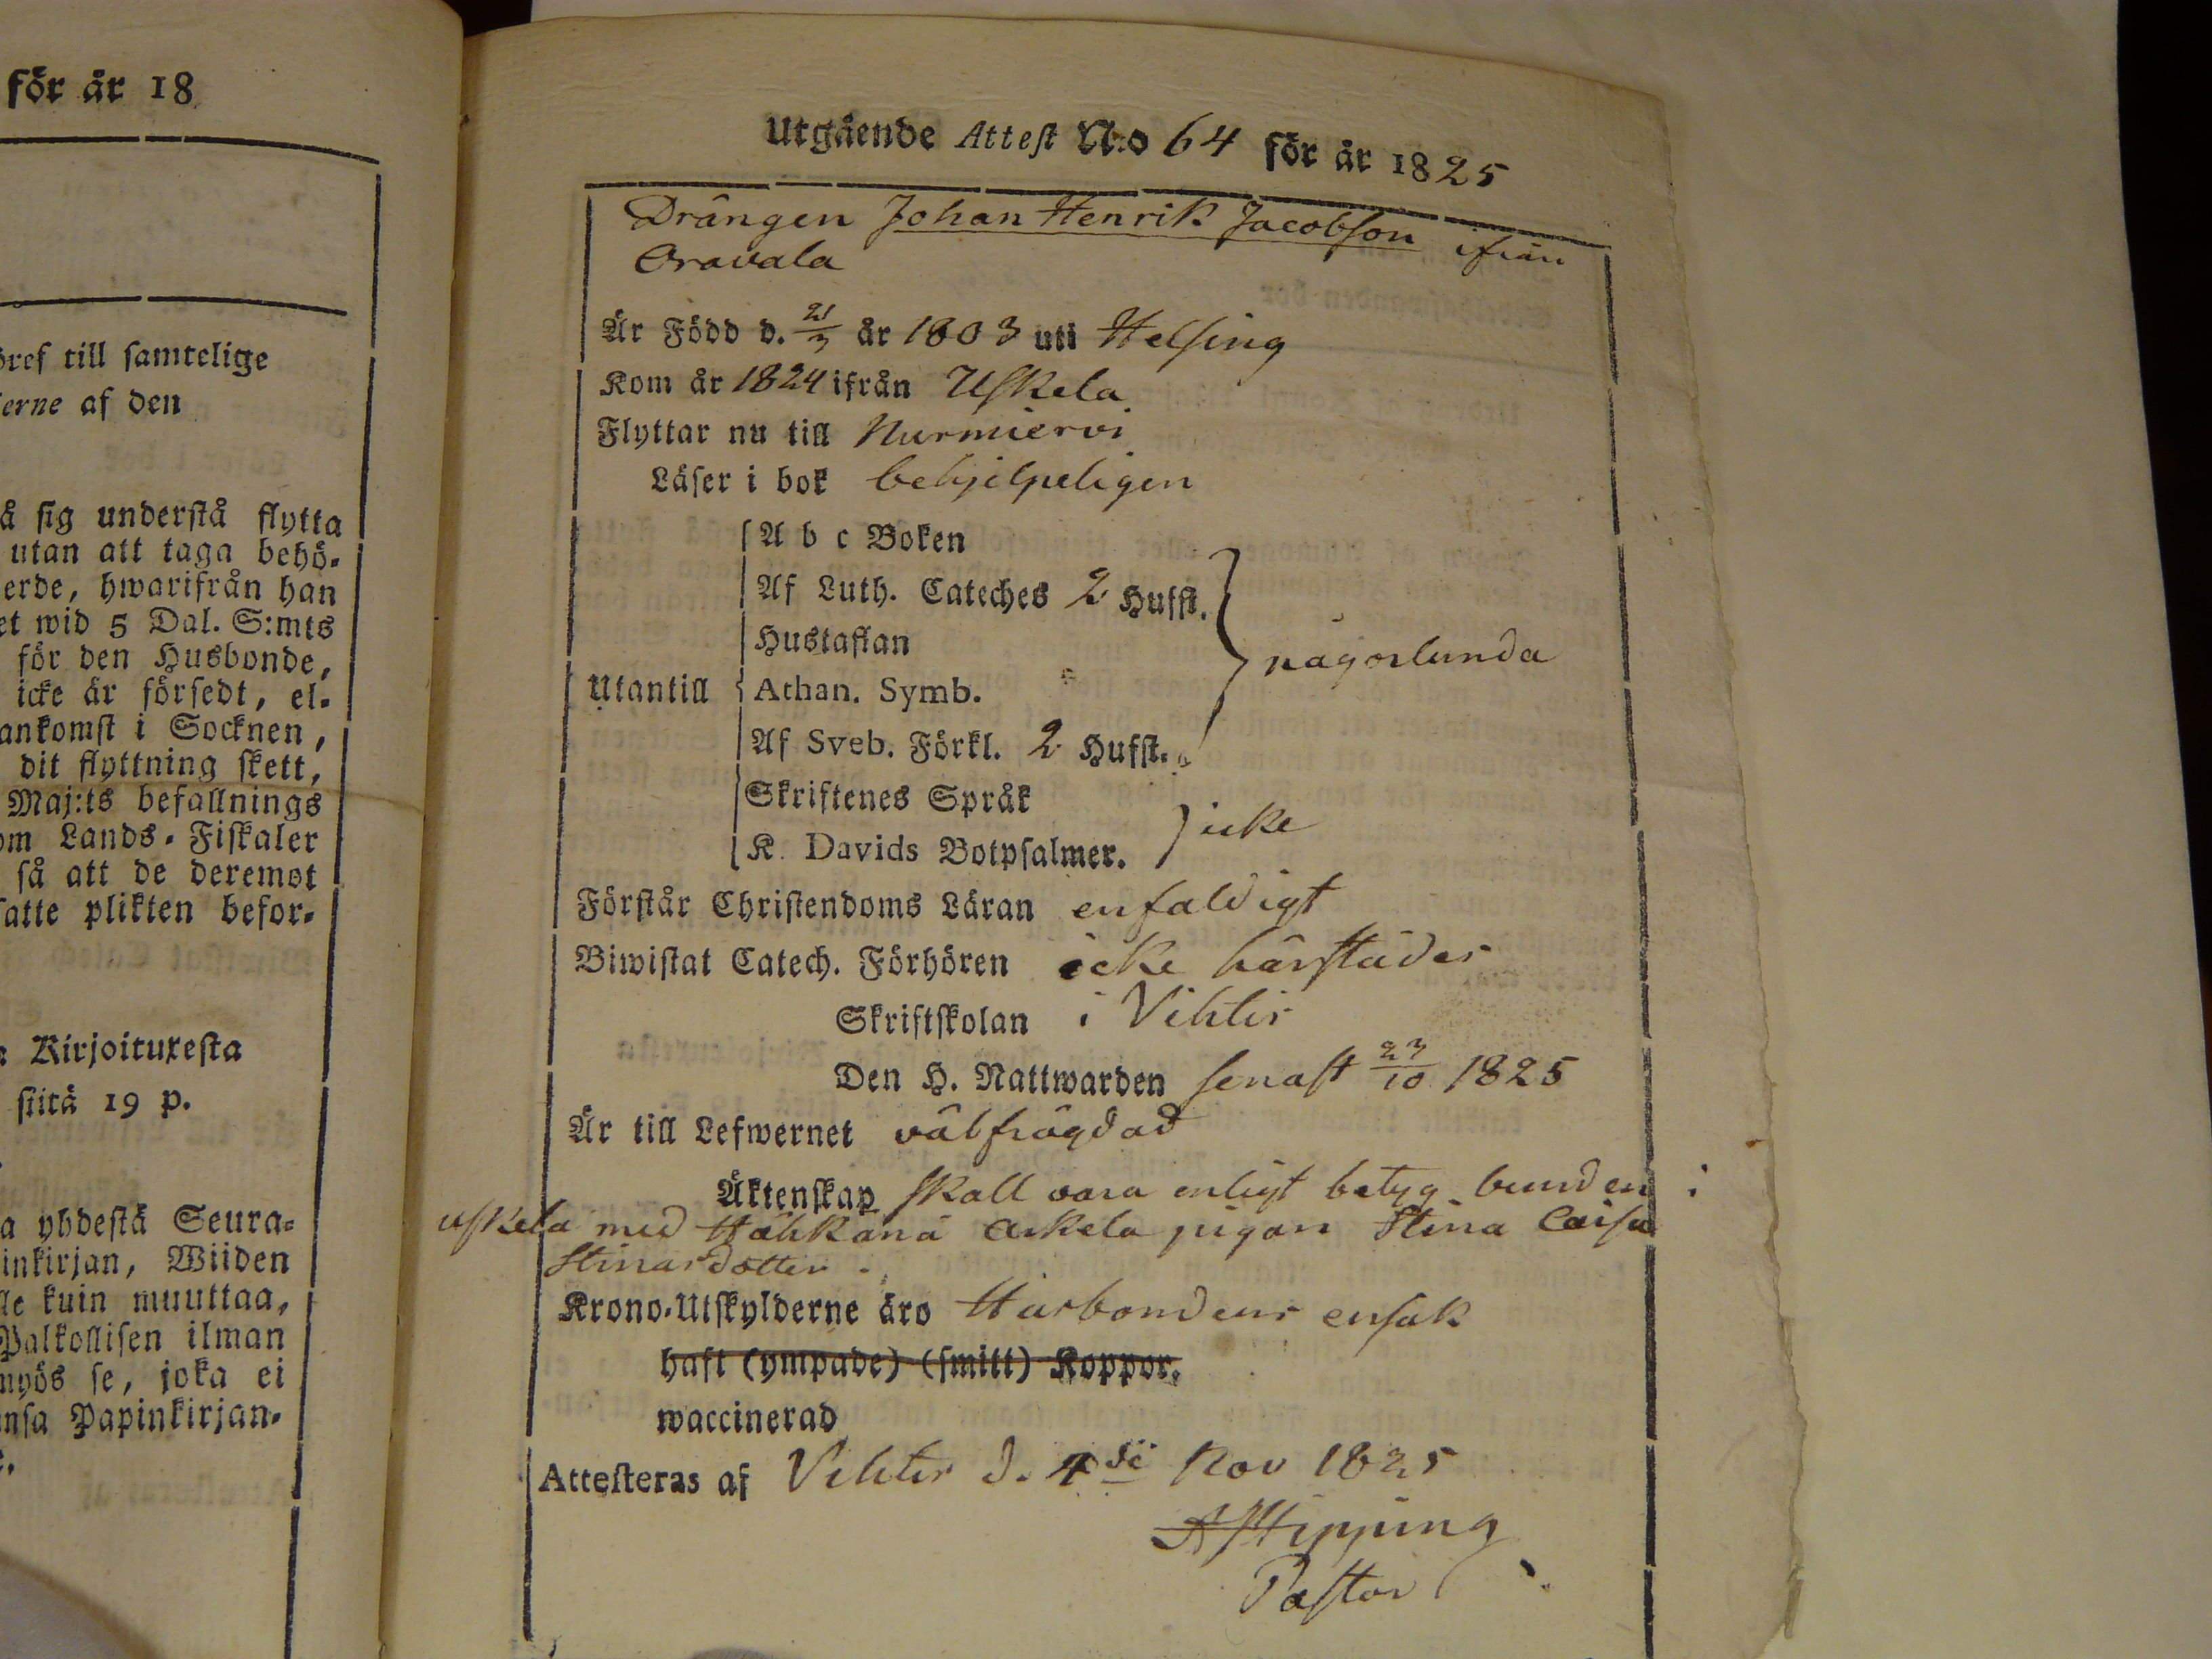 för år 18
bref till samtelige
erne af den
å sig understå flytta
utan att taga behö-
erde, hwarifrån han
et wid 5 Dal. S:mts
för den Husbonde,
icke är försedt, el-
ankomst i Socknen,
dit flyttning skett,
Maj:ts befallnings
om Lands-Fiskaler
så att de deremot
satte plikten befor-
Kirjoituxesta
siitä 19 p.
a yhdestä Seura-
inkirjan, Wiiden
lle kuin muuttaa,
Palkollisen ilman
myös se, joka ei
nsa Papinkirjan-
Utgående Attest N:o 64 för år 1825
Drängen Johan Henrik Jacobson ifrån
Oravala
Är Född d. 21/3 år 1803 uti Helsing
Kom år 1824 ifrån Uskela
Flyttar nu till Nurmiervi
Läser i bok behjelpeligen
A b c Boken
Af Luth. Cateches 2 Hufst.
Hustaflan
någorlunda
Utantill Athan. Symb.
Af Sveb. Förkl. 2 Hufst.
Skriftenes Språk
icke
K. Davids Botpsalmer.
Förstår Christendoms Läran enfaldigt
Biwistat Catech. Förhören icke härstädes
Skriftskolan i Vihtis
Den H. Nattwarden senast 23/10 1825
Är till Lefwernet välfrägdad
Äktenskap skall vara enligt betyg bunden i
Uskela med pigan Stina Caisa
Stinasdotter.
Krono-Utskylderne äro Husbondens ensak
haft (ympade) (smitt) Koppor.
waccinerad
Attesteras af Vihtis d. 4de Nov 1825
A Hipping
Pastor